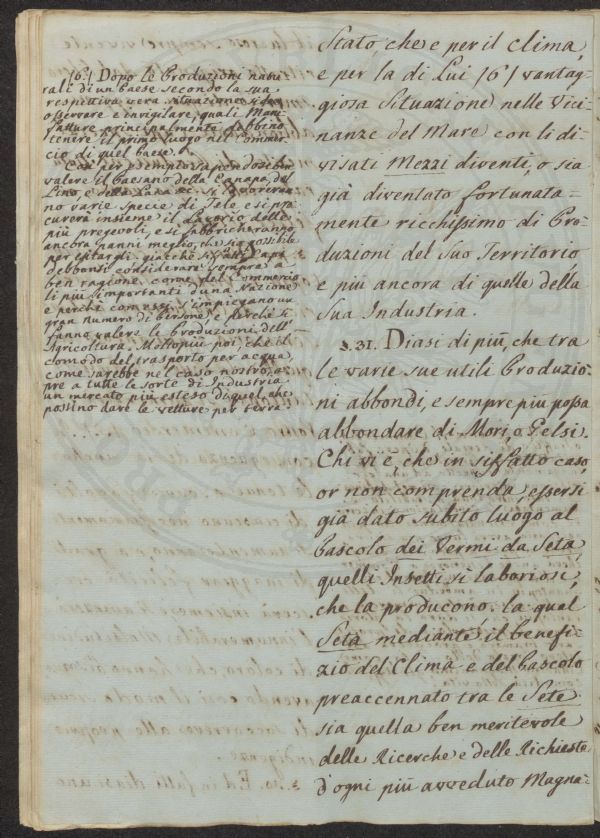 (6.) Dopo le Produzioni natu-
rali di un Paese secondo la sua
respettiva vera situazione si dee
osservare e invigilare, quali Mani-
fatture principalmente debbino
tenere il primo luogo nel Commer-
cio di quel Paese.
Così per esempio sapendosi ben
valere il Paesano della Canapa, del
Lino, e della Lana ec. si lavoreran-
no varie specie di Tele, e si pro-
curerà insieme il lavorio delle
più pregevoli, e si fabbricheranno
ancora Panni meglio, che sia possibile
per esitargli: giacchè siffatti Capi
debbonsi considerare sempre a
ben ragione, come del Commercio
li più importanti d'una Nazione
e perchè con essi s'impiegano un
gran numero di Persone, e perchè si
fanno valere le Produzioni dell'
Agricoltura. Moltopiù poi, che il
comodo del trasporto per acqua,
come sarebbe nel caso nostro, a-
pre a tutte le sorte di Industria
un mercato più esteso di quel, che
possino dare le vetture per terra.
Stato che e per il Clima,
e per la di Lui (6) vantag-
giosa Situazione nelle Vici-
nanze del Mare con li di-
visati Mezzi diventi, o sia
già diventato fortunata-
mente ricchissimo di Pro-
duzioni del Suo Territorio
e più ancora di quelle della
Sua Industria.
§.31. Diasi di più, che tra
le varie sue utili Produzio-
ni abbondi, e sempre piu possa
abbondare di Mori, o Gelsi.
Chi vi è, che in siffatto caso,
or non comprenda, essersi
già dato subito luogo al
Pascolo dei Vermi da Seta,
quelli Insetti sì laboriosi,
che la producono: la qual
Seta mediante il benefi-
zio del Clima e del Pascolo
preaccennato tra le Sete
sia quella ben meritevole
delle Ricerche e delle Richieste
d'ogni più avveduto Magna-